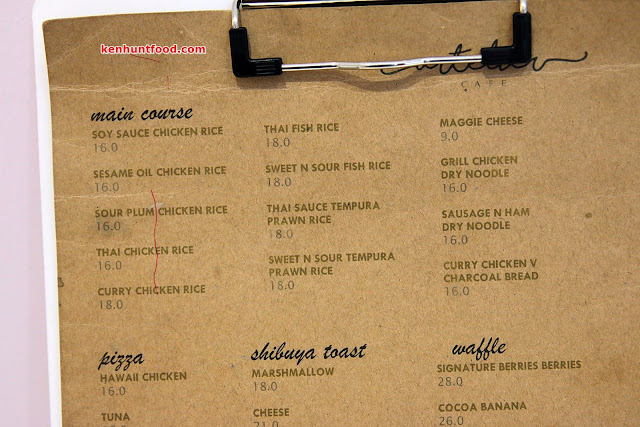 kenhuntfood.com
CAFE
main course
SOY SAUCE CHICKEN RICE
16.0
SESAME OIL CHICKEN RICE
16.0
SOUR PLUM CHICKEN RICE
16.0
THAI CHICKEN RICE
16.0
CURRY CHICKEN RICE
18.0
THAI FISH RICE
18.0
SWEET N SOUR FISH RICE
18.0
THAI SAUCE TEMPURA
PRAWN RICE
18.0
SWEET N SOUR TEMPURA
PRAWN RICE
18.0
MAGGIE CHEESE
9.0
GRILL CHICKEN
DRY NOODLE
16.0
SAUSAGE N HAM
DRY NOODLE
16.0
CURRY CHICKEN V
CHARCOAL BREAD
16.0
pizza
HAWAII CHICKEN
16.0
TUNA
shibuya toast
MARSHMALLOW
18.0
CHEESE
21.0
waffle
SIGNATURE BERRIES BERRIES
28.0
COCOA BANANA
26.0